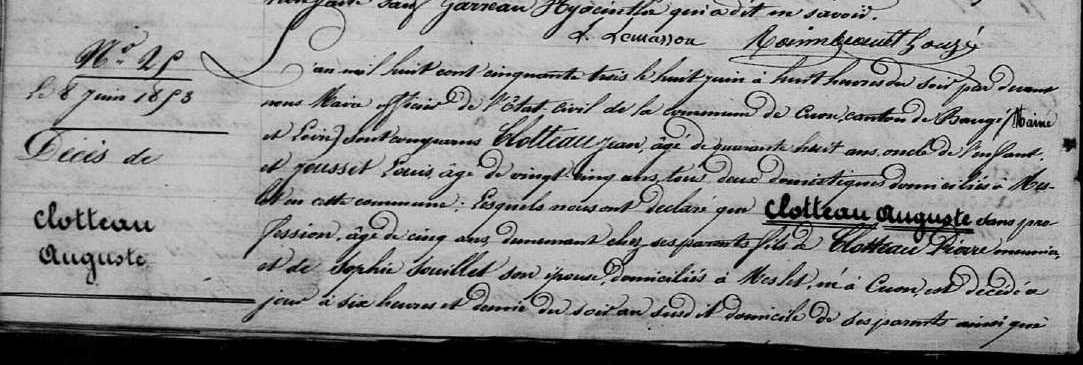 sauf Garreau Hyacinthe qui a dit ne savoir.
L. Lemasson
No. 25
Le 8 juin 1853
Décès de
Clotteau
Auguste
L'an mil huit cent cinquante trois le huit juin à huit heures du soir par devant
nous Maire officier de l'État civil de la commune de Cuon, canton de Baugé (Maine
et Loire) sont comparus Clotteau Jean, âgé de quarante huit ans, oncle de l'enfant,
et Gousset Louis, âgé de vingt cinq ans, tous deux domestiques domiciliés à Mes-
let en cette commune : Lesquels nous ont déclaré que Clotteau Auguste sans pro-
fession, âgé de cinq ans, demeurant chez ses parents, fils de Clotteau Pierre meunier,
et de Sophie Souillet son épouse, domiciliés à Meslet, né à Cuon, est décédé ce
jour à six heures et demie du soir au susdit domicile de ses parents ainsi que